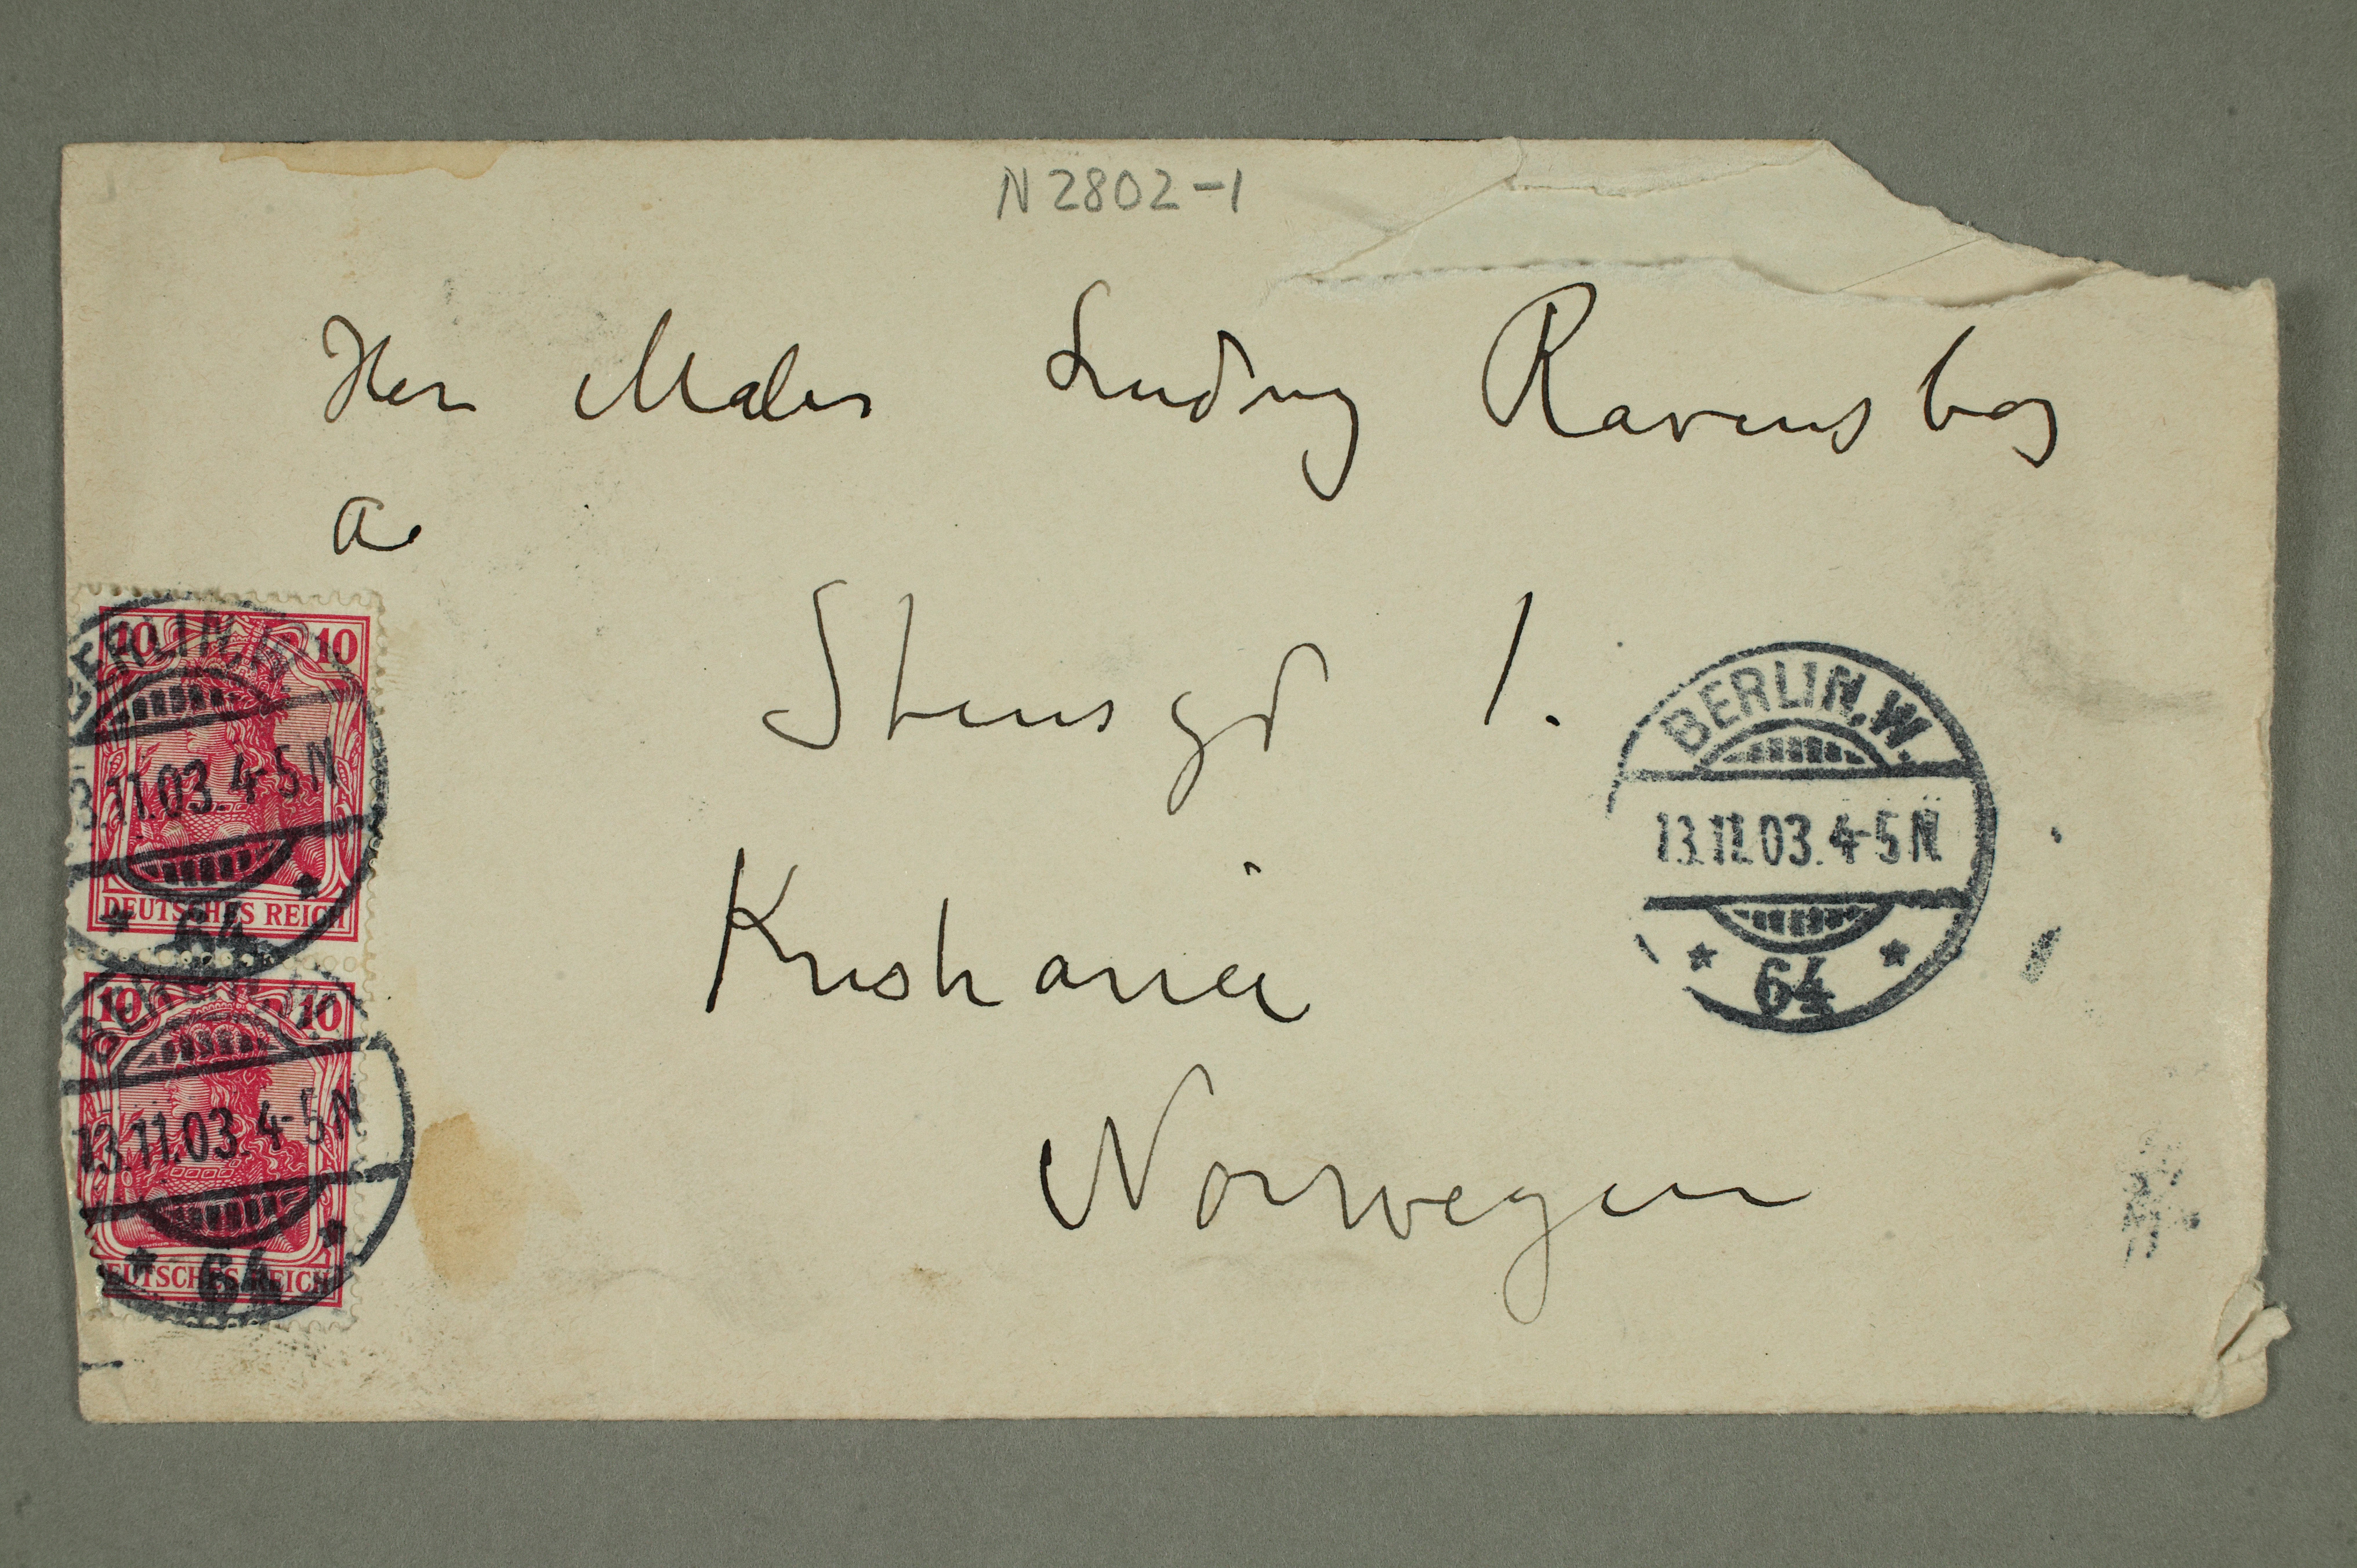 N 2802-1
Herr Maler Ludvig Ravensberg
Stensgd 1.
Kristiania
Norwegen
BERLIN.W.
13.11.03.4-5N
* 64 *
10 10
BERLIN.W.
13.11.03.4-5N
DEUTSCHES REICH
* 64 *
10 10
BERLIN.W.
13.11.03.4-5N
DEUTSCHES REICH
* 64 *